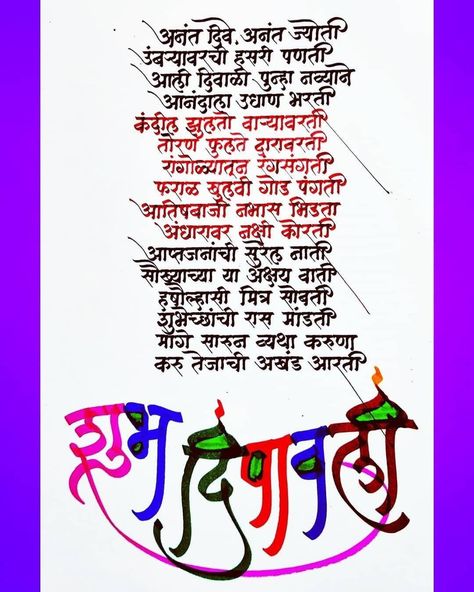 अनंत दिवे, अनंत ज्योती
उंबऱ्यावरची हसरी पणती
आली दिवाळी पुन्हा नव्याने
आनंदाला उधाण भरती
कंदील झुलतो वाऱ्यावरती
तोरण फुलते दारावरती
रांगोळ्यातून रंगसंगती
फराळ घुलवी गोड पंगती
आतिषबाजी नभास भिडता
अंधारावर नक्षी कोरती
आप्तजनांची सुरेल नाती
सौख्याच्या या अक्षय वाती
हर्षोल्हासी मित्र सोबती
शुंभेच्छांची रास मांडती
मागे सारुन व्यथा करुणा
करु तेजाची अखंड आरती
शुभ दिपावली